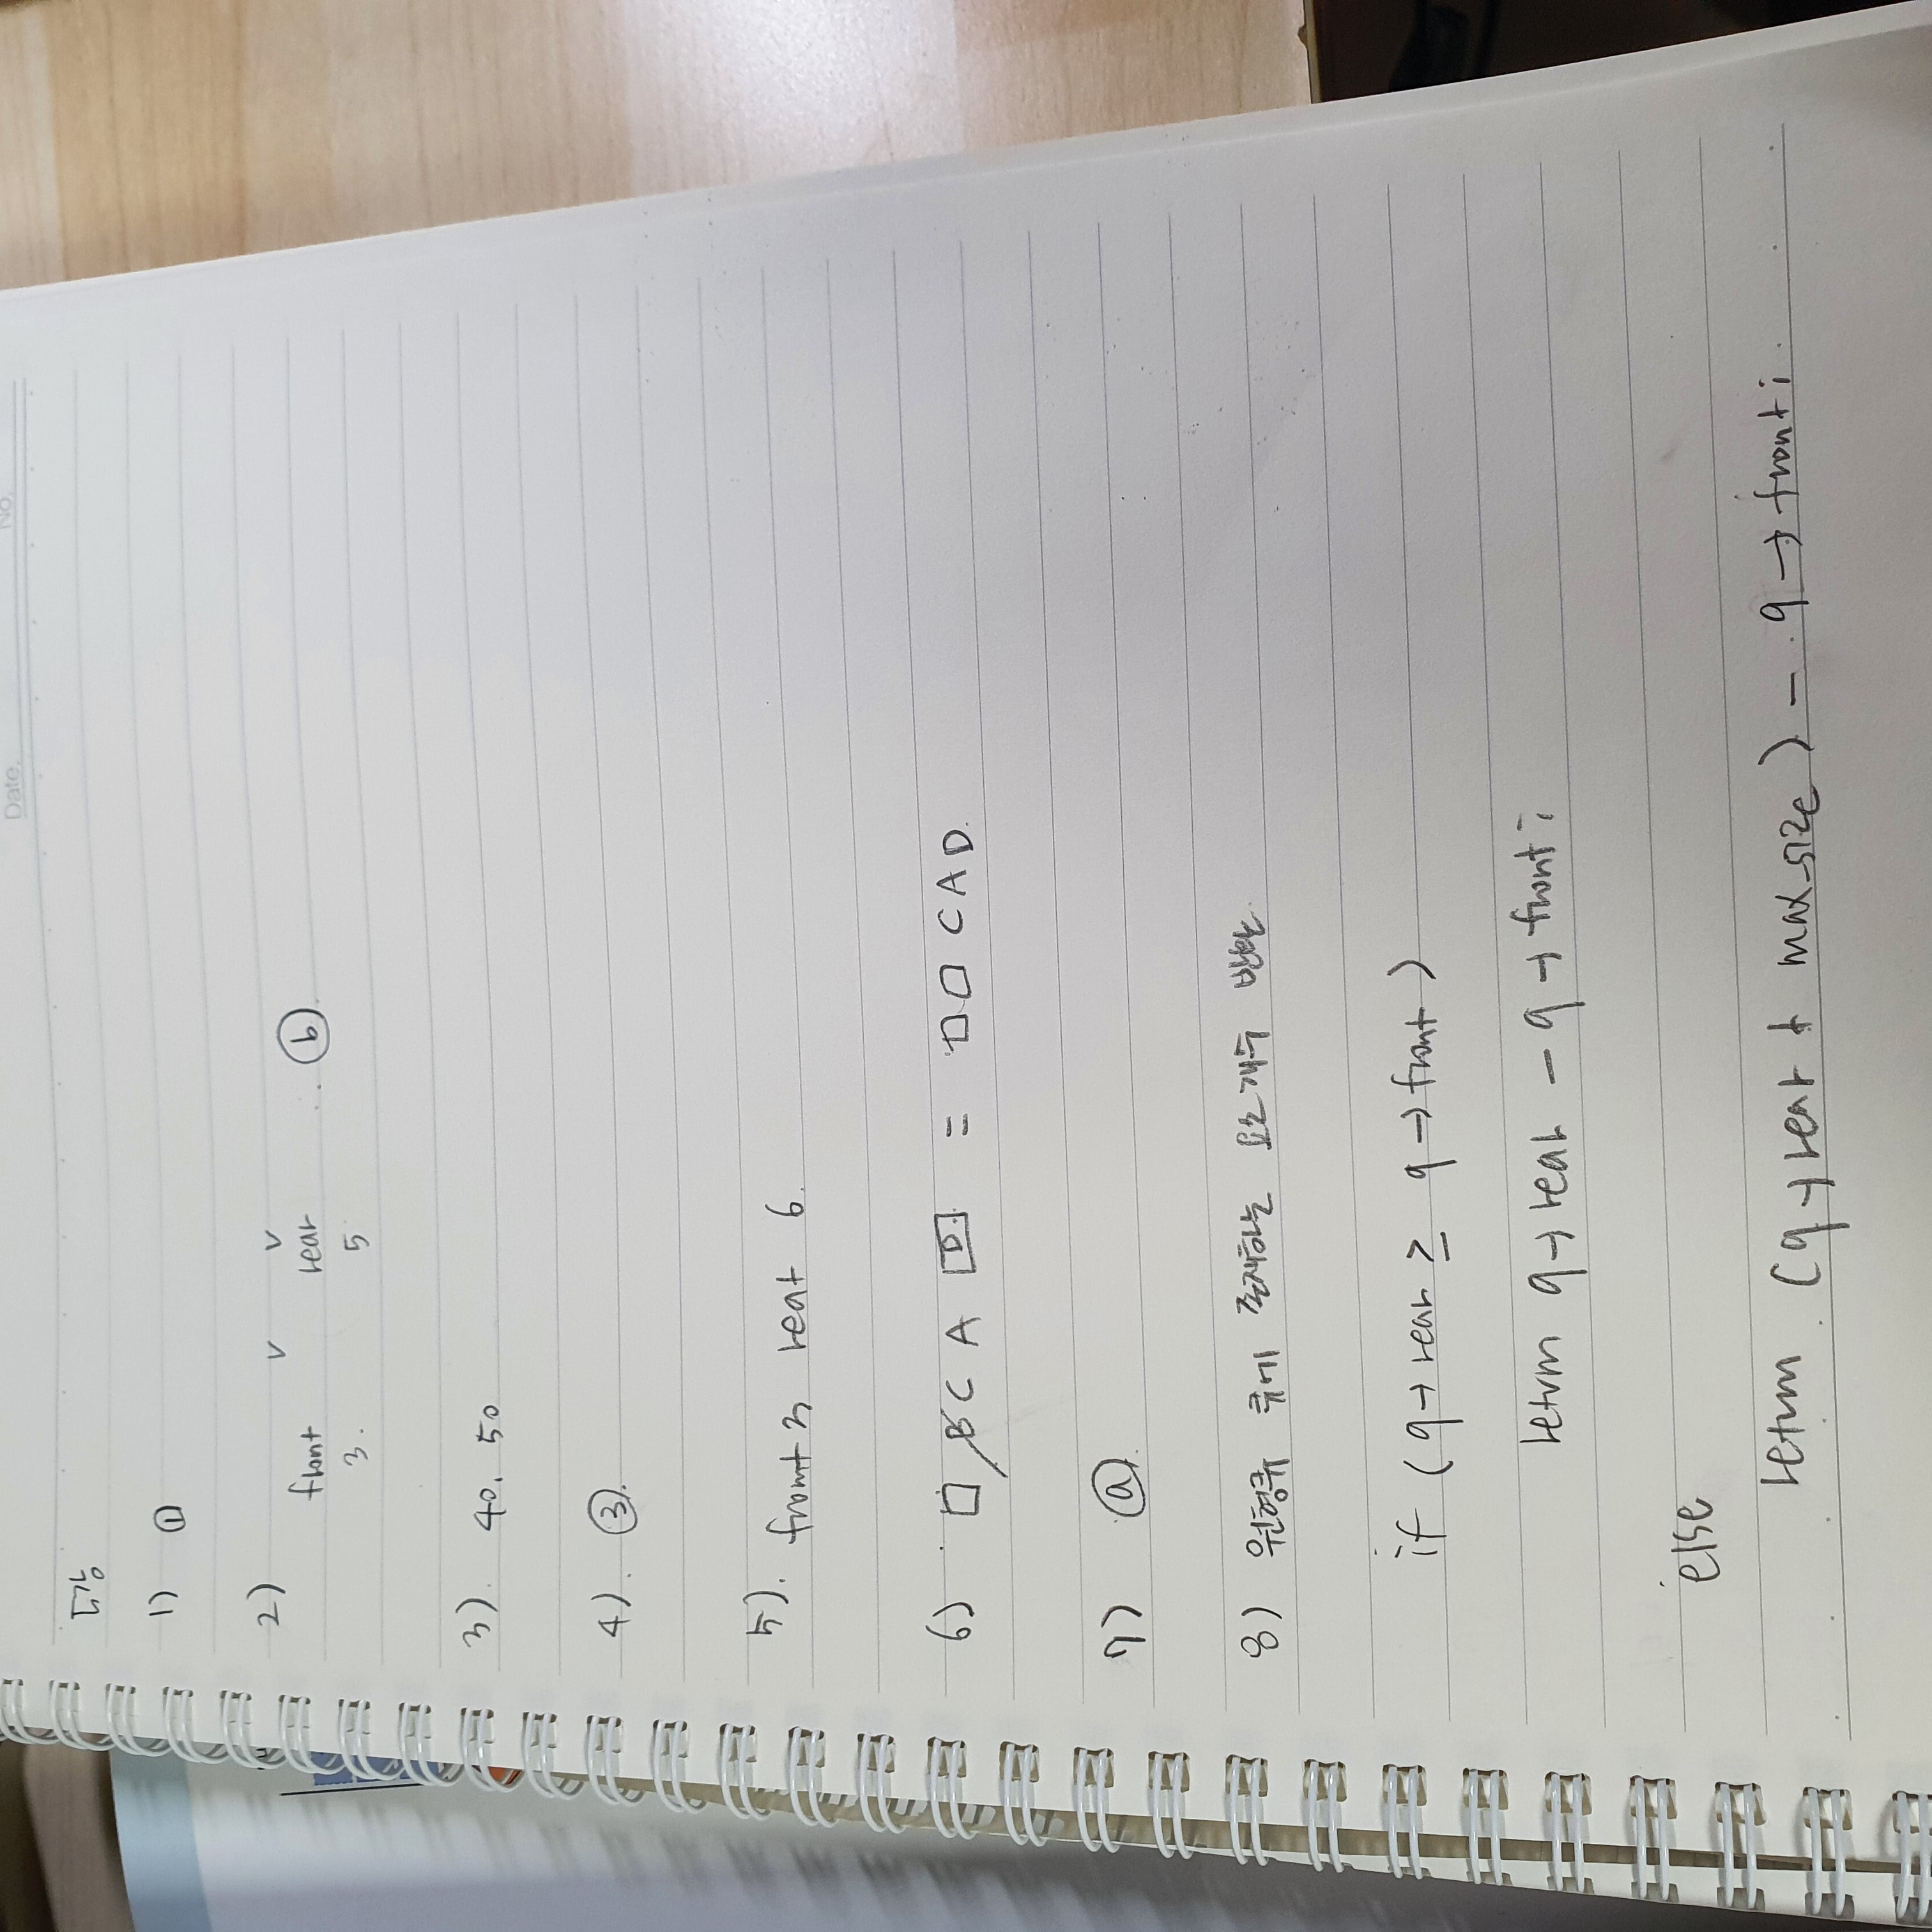 Date. No.
5강
1) ①
2) v v
front rear ∴ ⓑ.
3. 5
3). 40. 50
4). ③.
5). fromt 3 rear 6.
6) □ B C A D. = □□ C A D.
7) ⓐ.
8) 원형큐 큐에 존재하는 요소 개수 반환.
if ( q → rear ≥ q → front )
return q → rear - q → front ;
else
return (q → rear + max_size ) - q → front ;